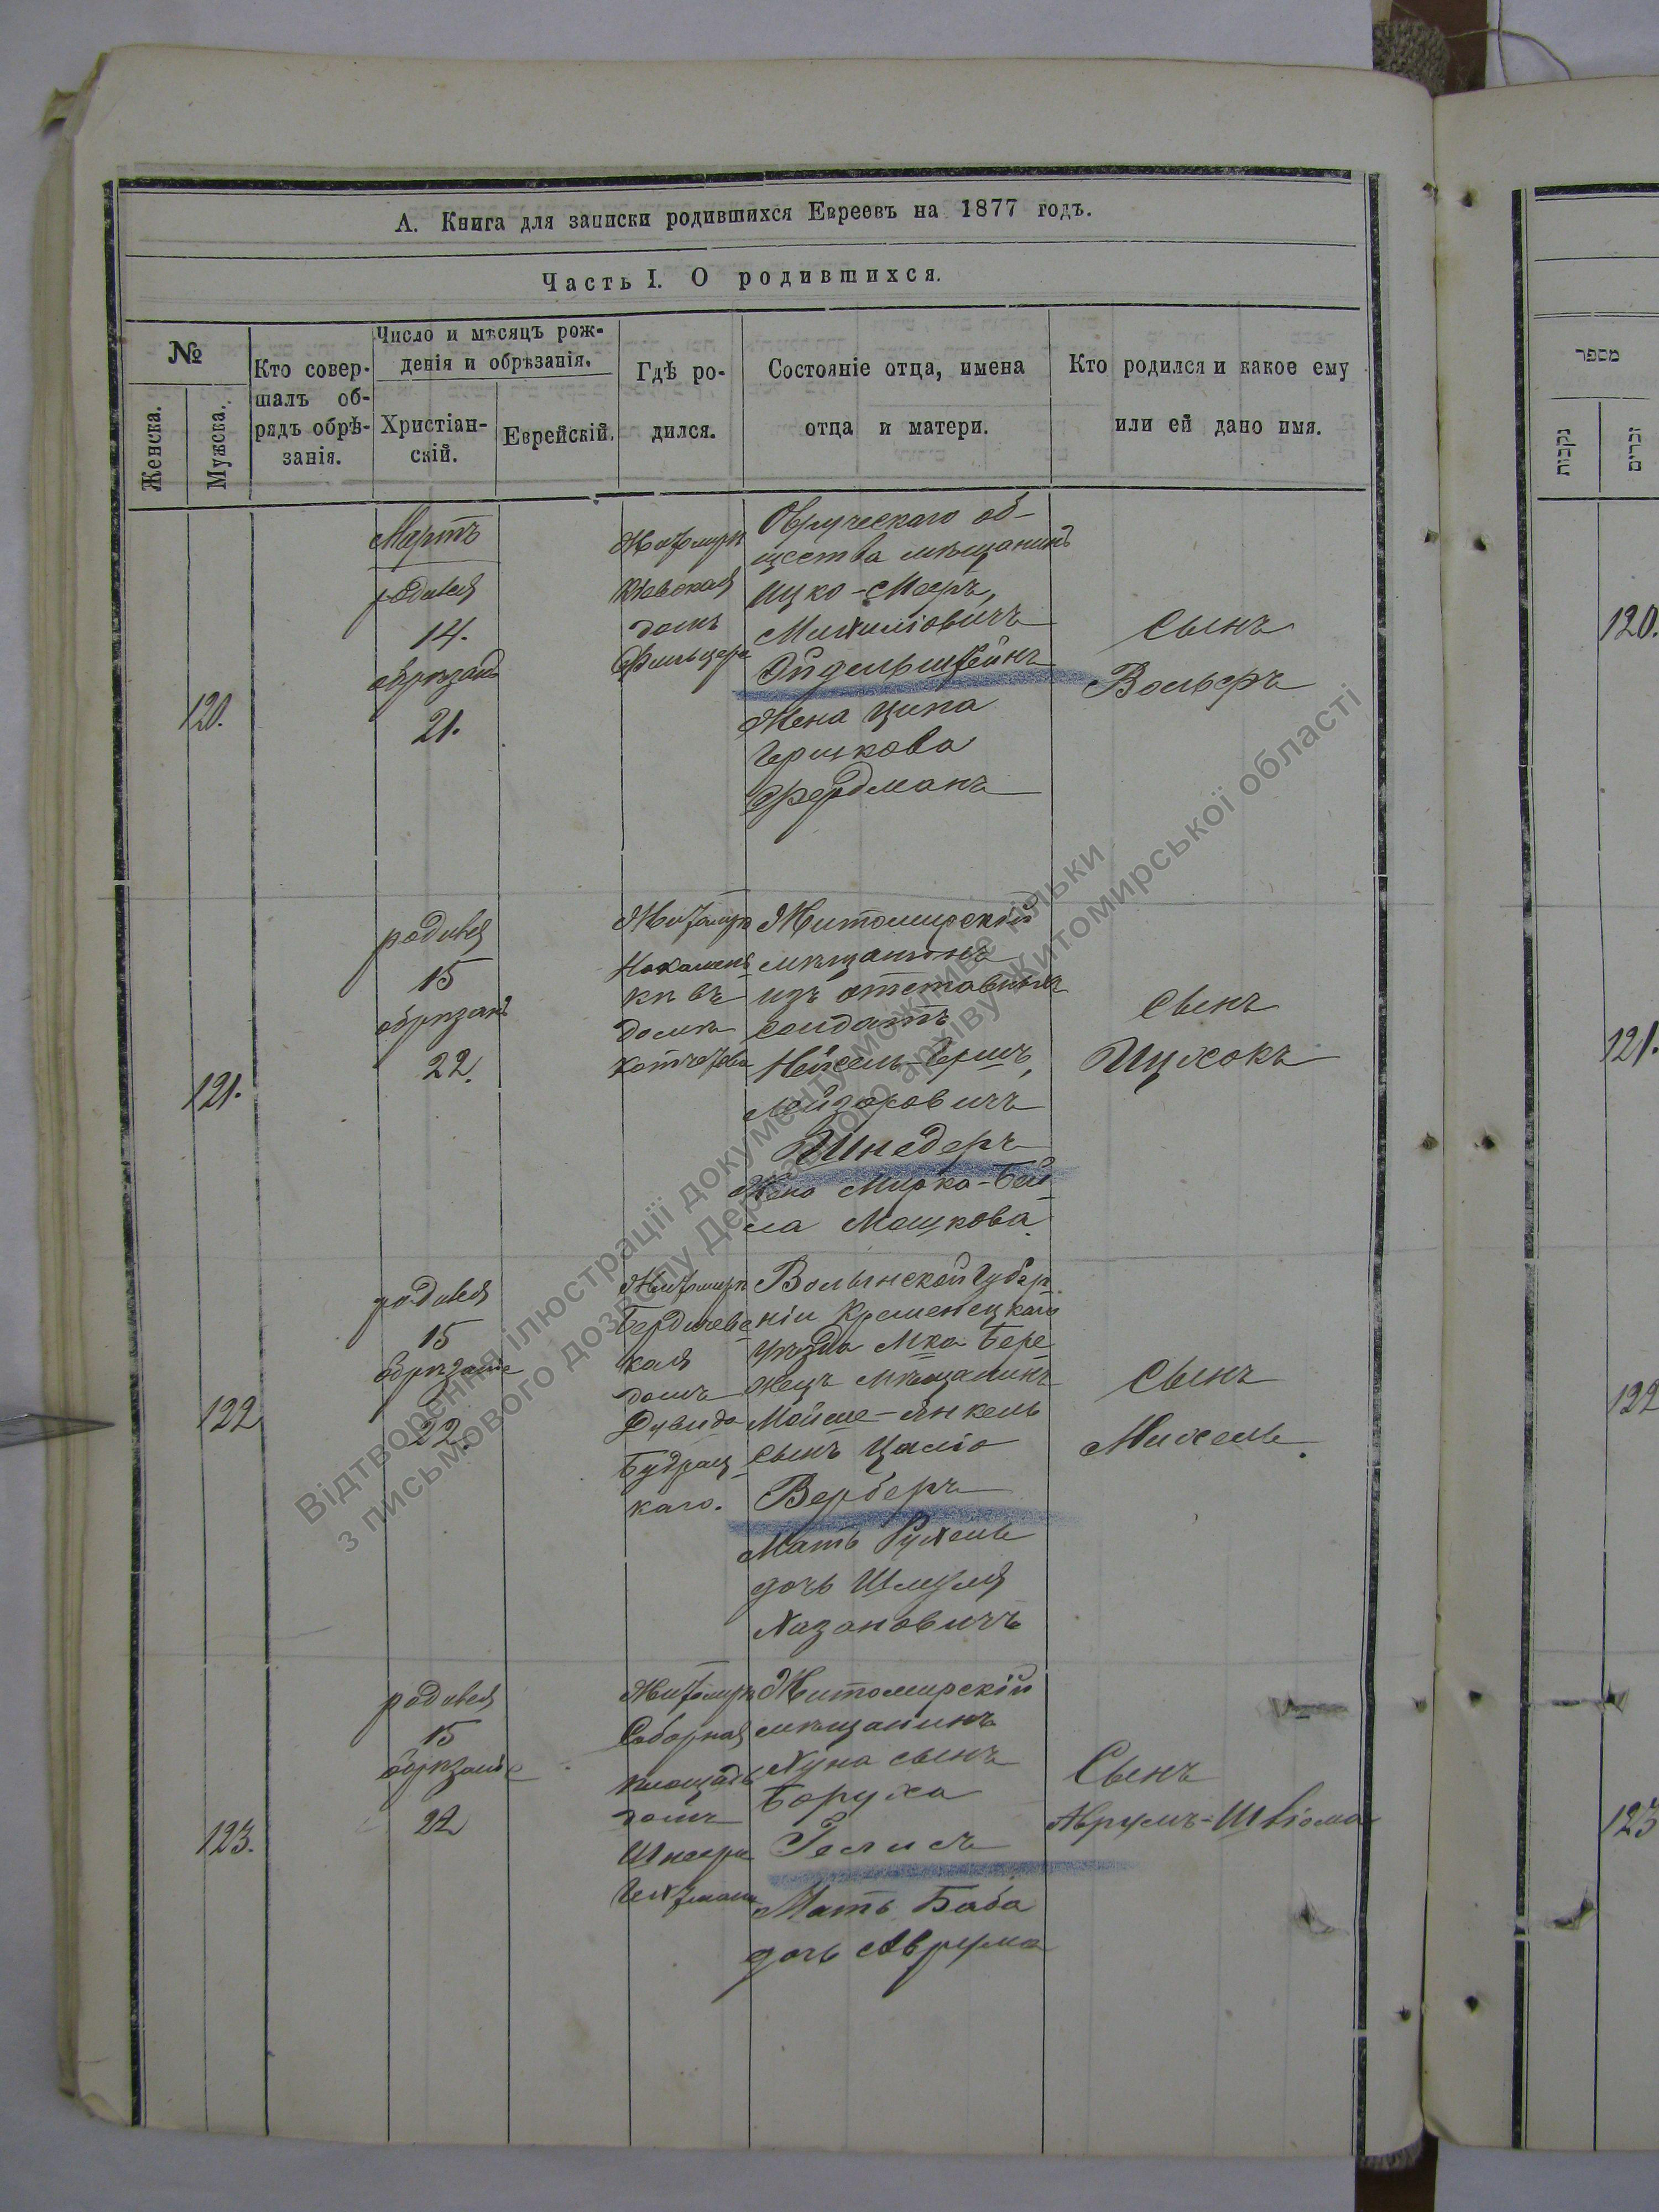 А. Книга для записки родившихся Евреевъ на 1877 годъ.
Часть I. О родившихся.
№
Женска.
Мужска.
Кто совер-
шалъ об-
рядъ обрѣ-
занія.
Число и мѣсяцъ рож-
денія и обрѣзанія.
Христіан-
скій.
Еврейскій.
Гдѣ ро-
дился.
Состояніе отца, имена
отца и матери.
Кто родился и какое ему
или ей дано имя.
120.
Мартъ
родився
14.
обрѣзанъ
21.
Житомиръ
Кіевская
домъ
Овручскаго об-
щества мѣщанинъ
Ицко-Мееръ,
Михиліовичъ
Эйдельштейнъ
Жена Ципа
Гершкова
Фердманъ
Сынъ
Вольеръ
121.
родився
15
обрѣзанъ
22.
Житомиръ
на камен-
къ въ
домѣ
Житомирскій
мѣщанинъ
изъ отставныхъ
солдатъ
Лейзоровичъ
Шнедеръ
Жена Мирка-Бей-
ла Мошкова.
Сынъ
Ицхокъ
122
родився
15
обрѣзаніе
22.
Житомиръ
Бердичевс-
кая
домъ
Давида
каго.
Волынской Губер
ніи Кременецкаго
уѣзда М-ка Бере
жецъ мѣщанинъ
Мойше-Янкель
сынъ Цаліо
Верберъ
Мать Рухель
дочь Шмуля
Хазановичъ
Сынъ
Михель.
123.
родився
15
обрѣзаніе
22
Житомиръ
Соборная
площадь
домъ
Житомирскій
мѣщанинъ
Хуна сынъ
Боруха
Гелисъ
Мать Баба
дочь Аврума
Сынъ
Аврумъ-Шліома
מספר
נקבות
זכרים
120.
121.
122
123
Відтворення ілюстрації документу можливе тільки
з письмового дозволу Державного архіву Житомирської області